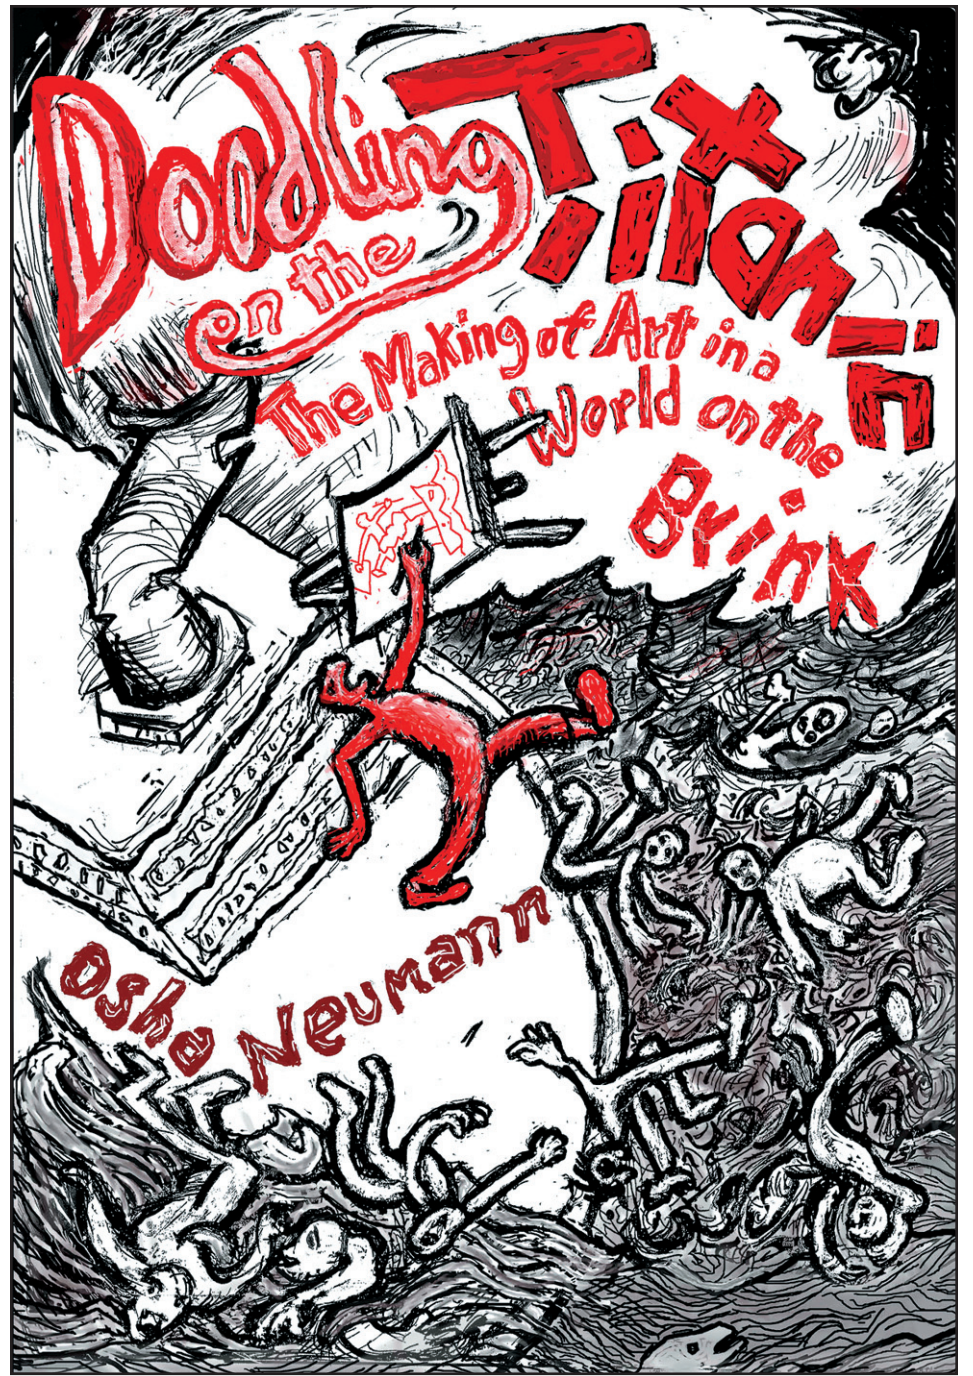 Doodling
on the
Titanic
The Making of Art in a
World on the
Brink
Osha Neumann